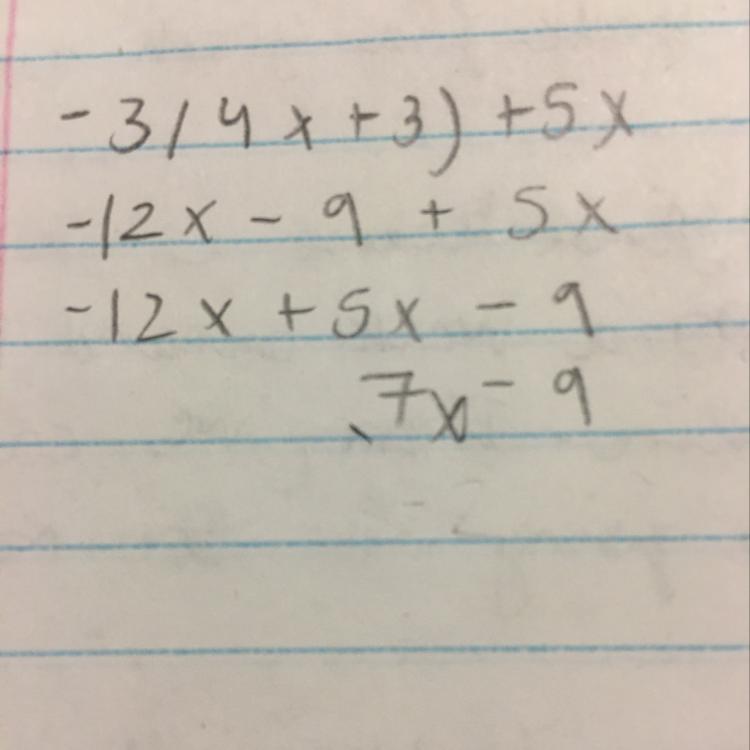 -3(4x+3)+5x
-12x - 9 + 5x
-12x + 5x - 9
7x - 9